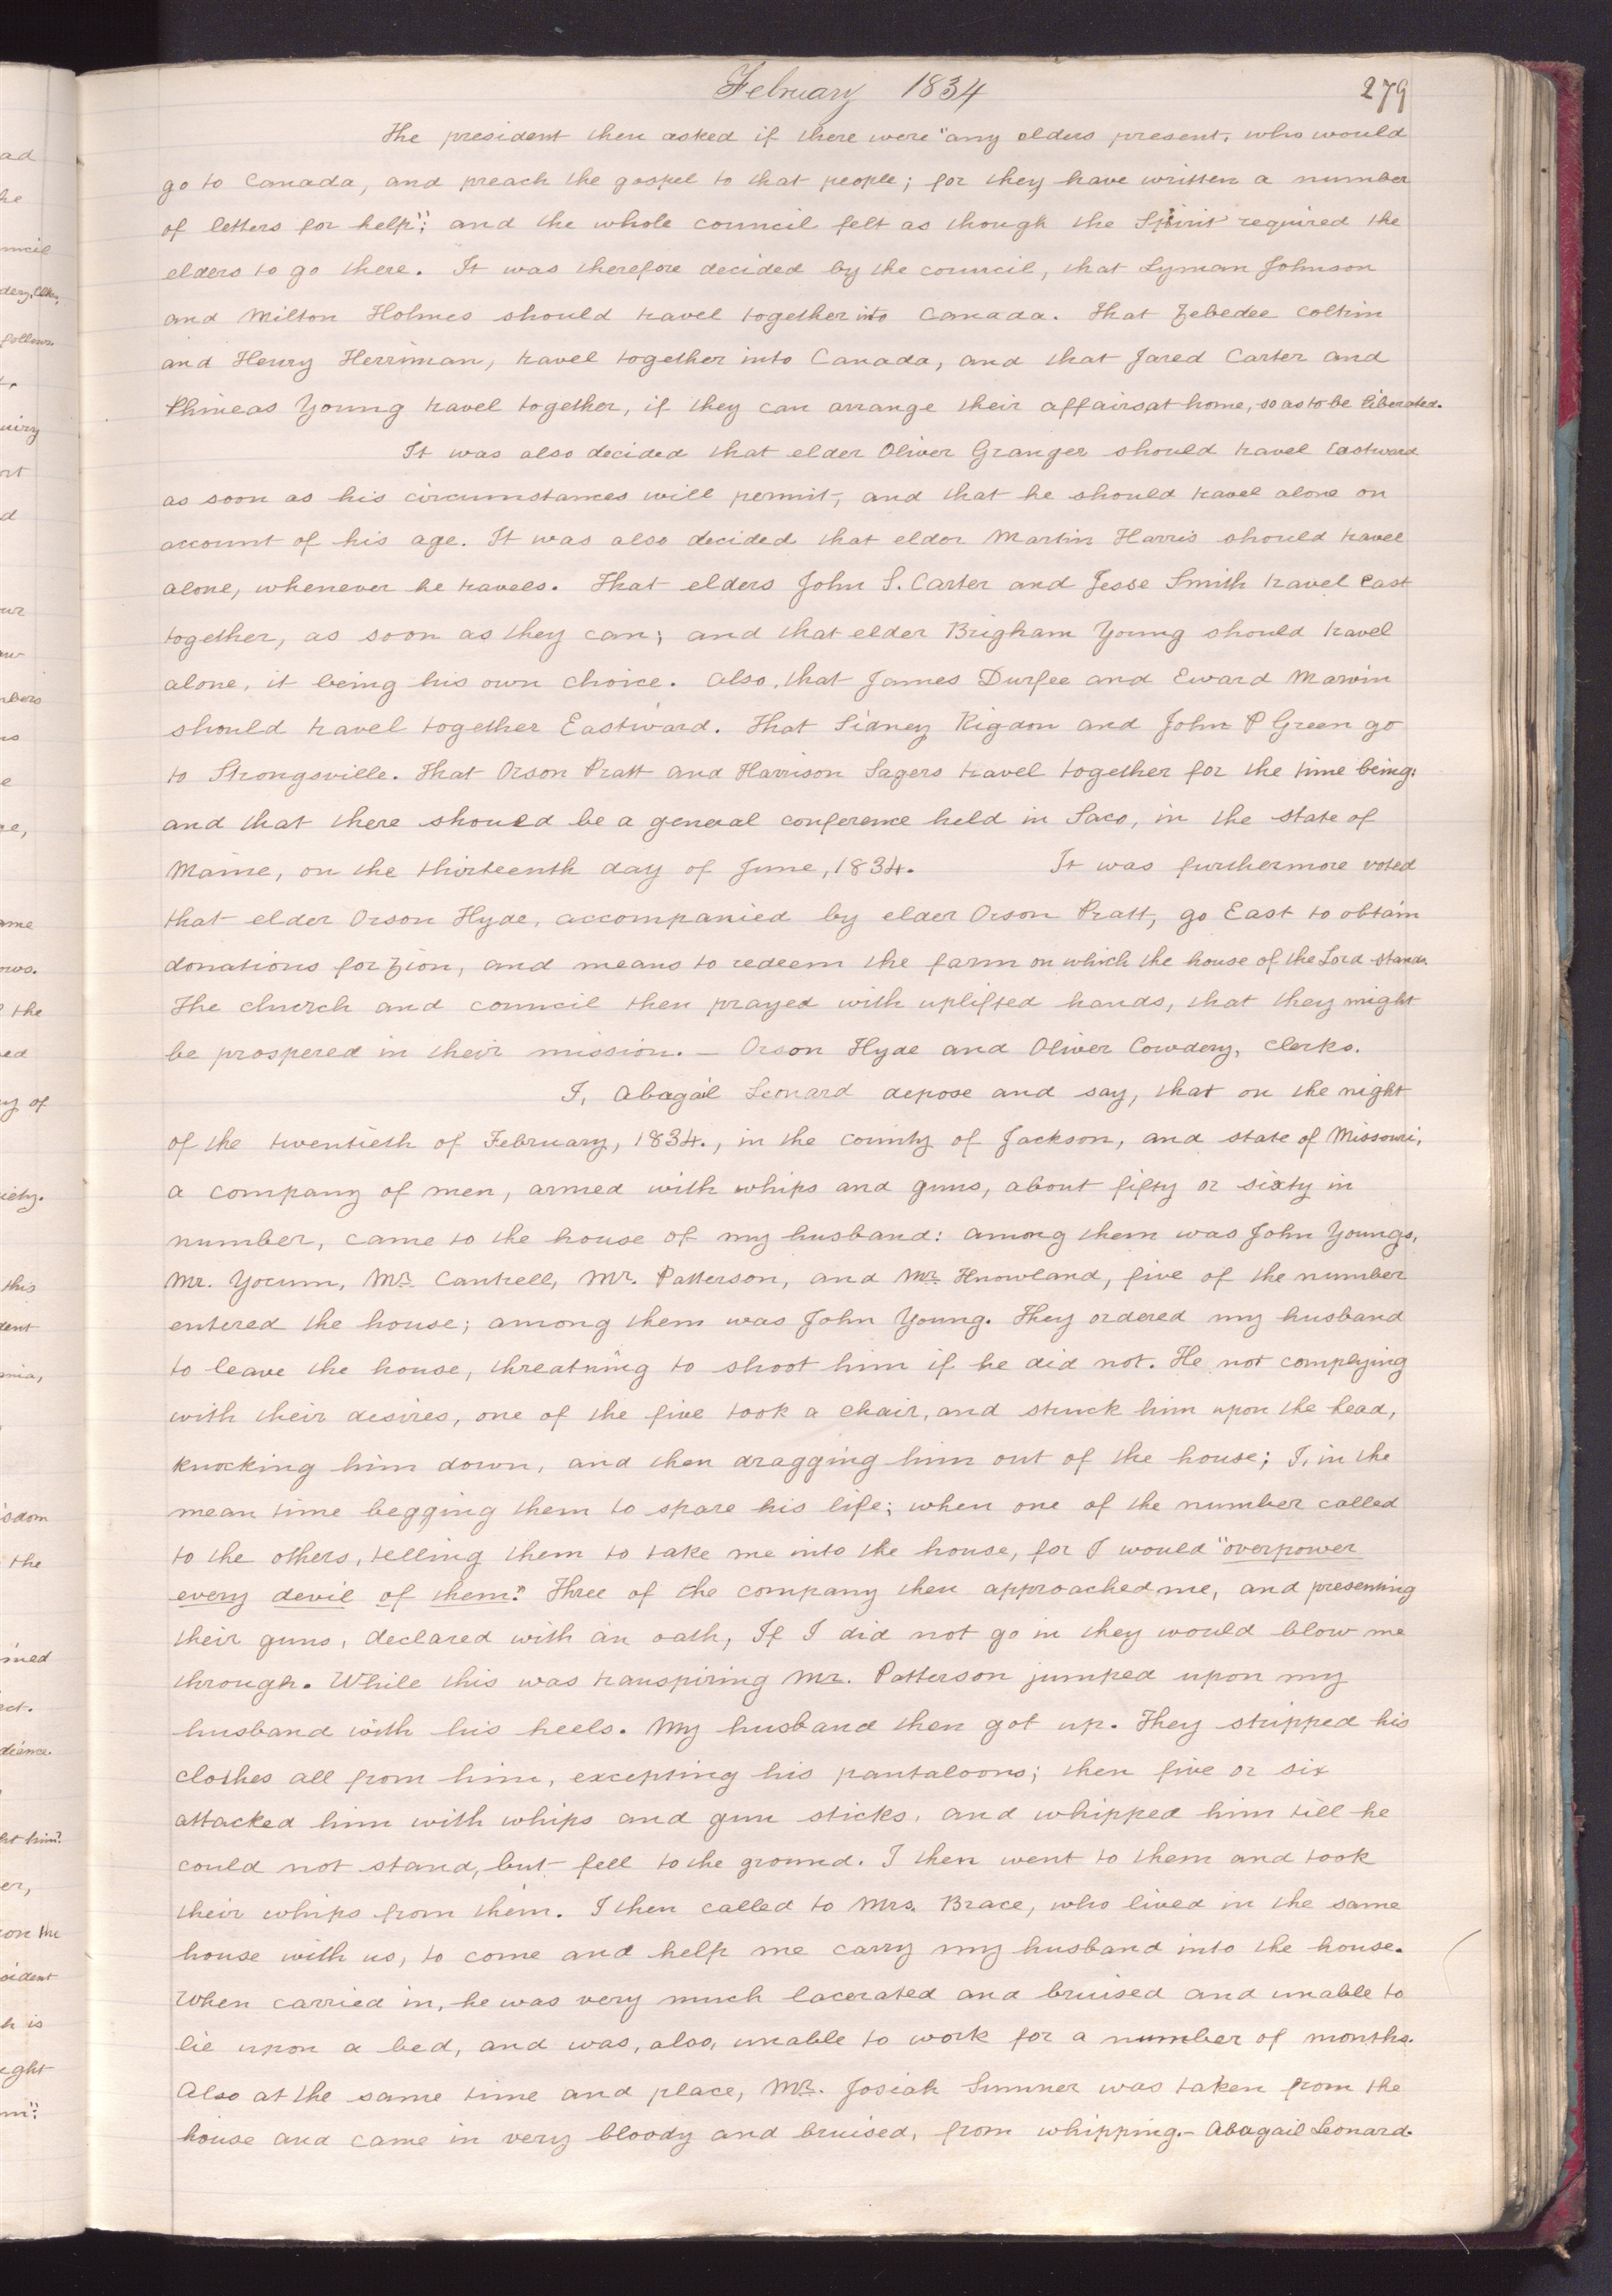 February 1834
279
The president then asked if there were "any elders present, who would
go to Canada, and preach the gospel to that people; for they have written a number
of letters for help"; and the whole council felt as though the Spirit required the
elders to go there. It was therefore decided by the council, that Lyman Johnson
and Milton Holmes should travel together into Canada. That Zebedee Coltrin
and Henry Herriman, travel together into Canada, and that Jared Carter and
Phineas Young travel together, if they can arrange their affairs at home, so as to be liberated.
It was also decided that elder Oliver Granger should travel Eastward
as soon as his circumstances will permit, and that he should travel alone on
account of his age. It was also decided that elder Martin Harris should travel
alone, whenever he travels. That elders John S. Carter and Jesse Smith travel East
together, as soon as they can; and that elder Brigham Young should travel
alone, it being his own choice. Also, that James Durfee and Eward Marvin
should travel together Eastward. That Sidney Rigdon and John P Green go
to Strongsville. That Orson Pratt and Harrison Sagers travel together for the time being:
and that there should be a general conference held in Saco, in the state of
Maine, on the thirteenth day of June, 1834. It was furthermore voted
that elder Orson Hyde, accompanied by elder Orson Pratt, go East to obtain
donations for Zion, and means to redeem the farm on which the house of the Lord stands.
The church and council then prayed with uplifted hands, that they might
be prospered in their mission. — Orson Hyde and Oliver Cowdery, Clerks.
I, Abagail Leonard depose and say, that on the night
of the twentieth of February, 1834., in the county of Jackson, and state of Missouri,
a company of men, armed with whips and guns, about fifty or sixty in
number, came to the house of my husband: among them was John Youngs,
Mr. Yocum, Mr. Cantrell, Mr. Patterson, and Mr. Knowland, five of the number
entered the house; among them was John Young. They ordered my husband
to leave the house, threatning to shoot him if he did not. He not complying
with their desires, one of the five took a chair, and struck him upon the head,
knocking him down, and then dragging him out of the house; I, in the
mean time begging them to spare his life; when one of the number called
to the others, telling them to take me into the house, for I would "overpower
every devil of them." Three of the company then approached me, and presenting
their guns, declared with an oath, If I did not go in they would blow me
through. While this was transpiring Mr. Patterson jumped upon my
husband with his heels. My husband then got up. They stripped his
clothes all from him, excepting his pantaloons; then five or six
attacked him with whips and gun sticks, and whipped him till he
could not stand, but fell to the ground. I then went to them and took
their whips from them. I then called to Mrs. Brace, who lived in the same
house with us, to come and help me carry my husband into the house.
When carried in, he was very much lacerated and bruised and unable to
lie upon a bed, and was, also, unable to work for a number of months.
Also at the same time and place, Mr. Josiah Sumner was taken from the
house and came in very bloody and bruised, from whipping.- Abagail Leonard.